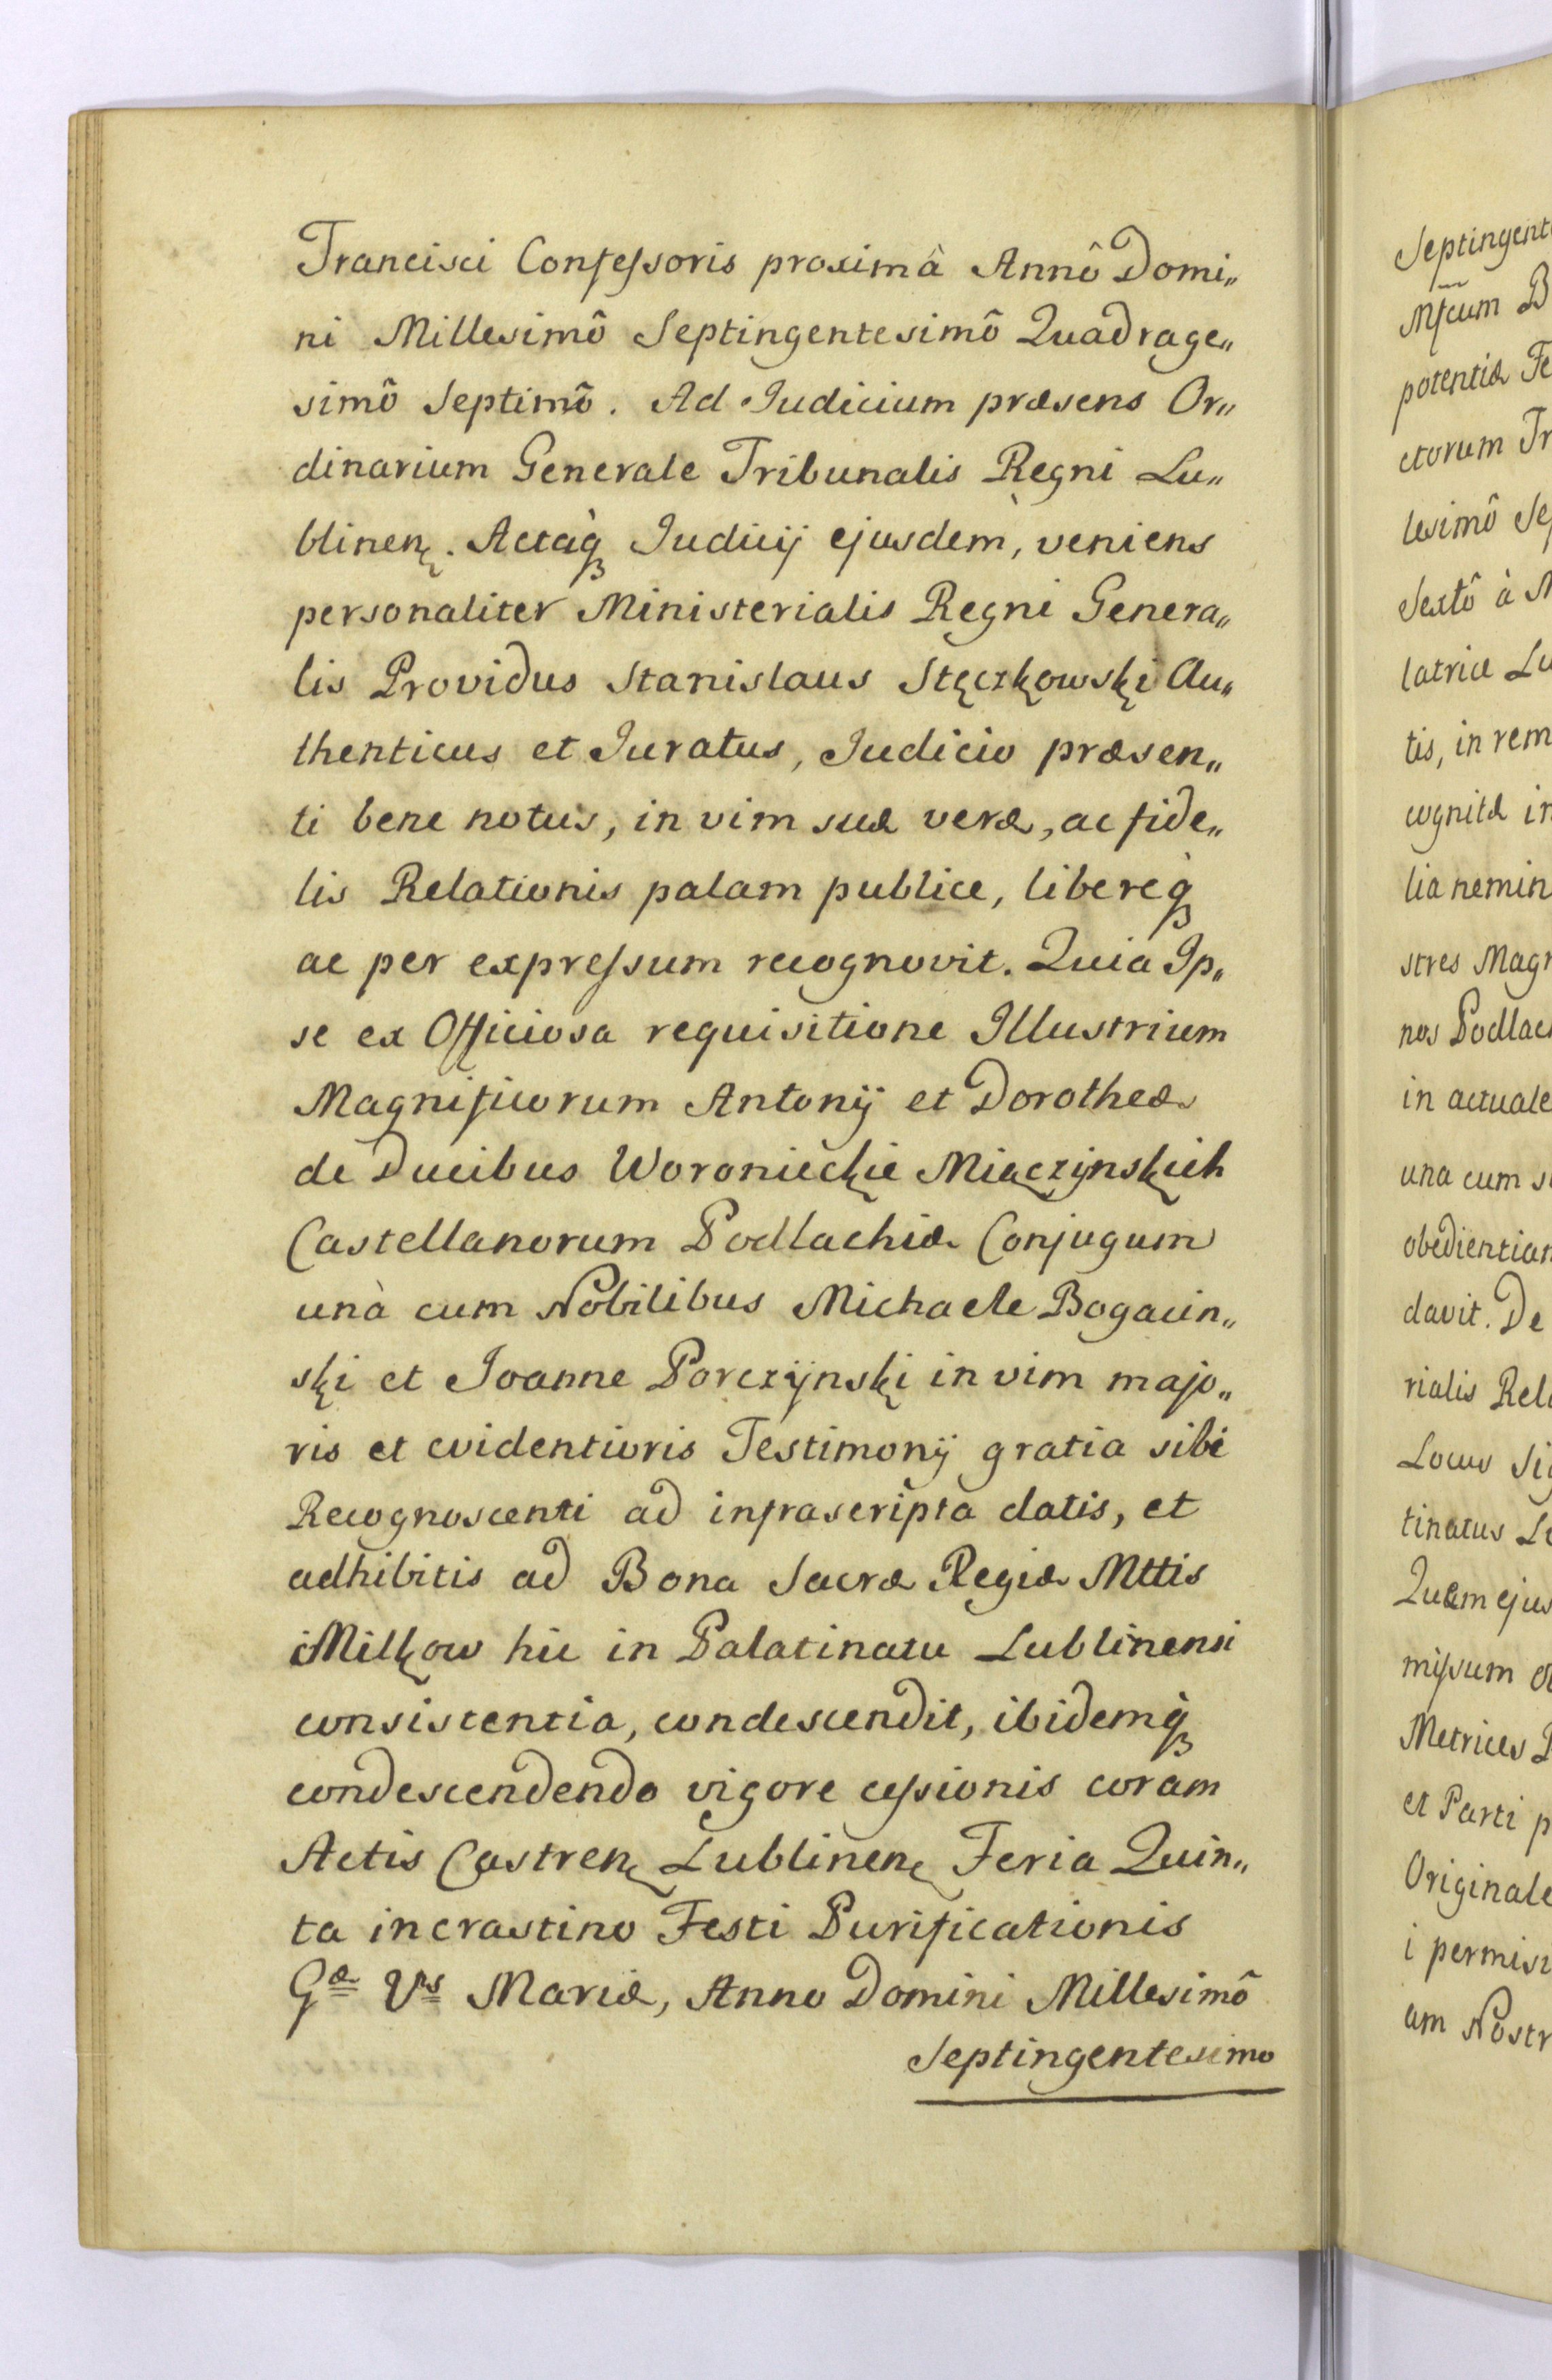 Francisci Confeſsoris proximâ Annô Domi„
ni Millesimô Septingentesimô Quadrage„
simô Septimô. Ad Judicium præsens Or„
dinarium Generale Tribunalis Regni Lu„
blinen. Actàq Judicij ejusdem, veniens
personaliter Ministerialis Regni Genera„
lis Providus Stanislaus Stęczkowski Au„
thenticus et Juratus, Judicio præsen„
ti bene notus, in vim suæ veræ, ac fide„
lis Relationis palam publice, libereq
ac per expreſsum recognovit. Quia Ip„
se ex Officiosa requisitione Illustrium
Magnificorum Antonij et Dorotheæ
de Ducibus Woronieckie Miączÿnskich
Castellanorum Podlachiæ Conjugum
unà cum Nobilibus Michaele Bogacin„
ski et Joanne Porczÿnski in vim majo„
ris et evidentioris Testimonij gratia sibi
Recognoscenti ad infrascripta datis, et
adhibitis ad Bona Sacræ Regiæ Mttis
Milkow hic in Palatinatu Lublinensi
consistentia, condescendit, ibidemq
condescendendo vigore ceſsionis coram
Actis Castren Lublinen Feria Quin„
ta in crastino Festi Purificationis
Gæ Vs Mariæ, Anno Domini Millesimô
Septingentesimo
Septingent
Mfcum B
potentiæ Fe
ctorum Tr
lesimô Se
Sextô à M
latriæ Lu
tis, in rem
cognitæ in
lia nemin
stres Magn
nos Podlac
in actuale
una cum s
obedientian
davit. De
rialis Rela
Locus Sig
tinatus Lu
Quam ejus
miſsum
Metrices P
et Parti p
Originale
i permisi
am Nostr